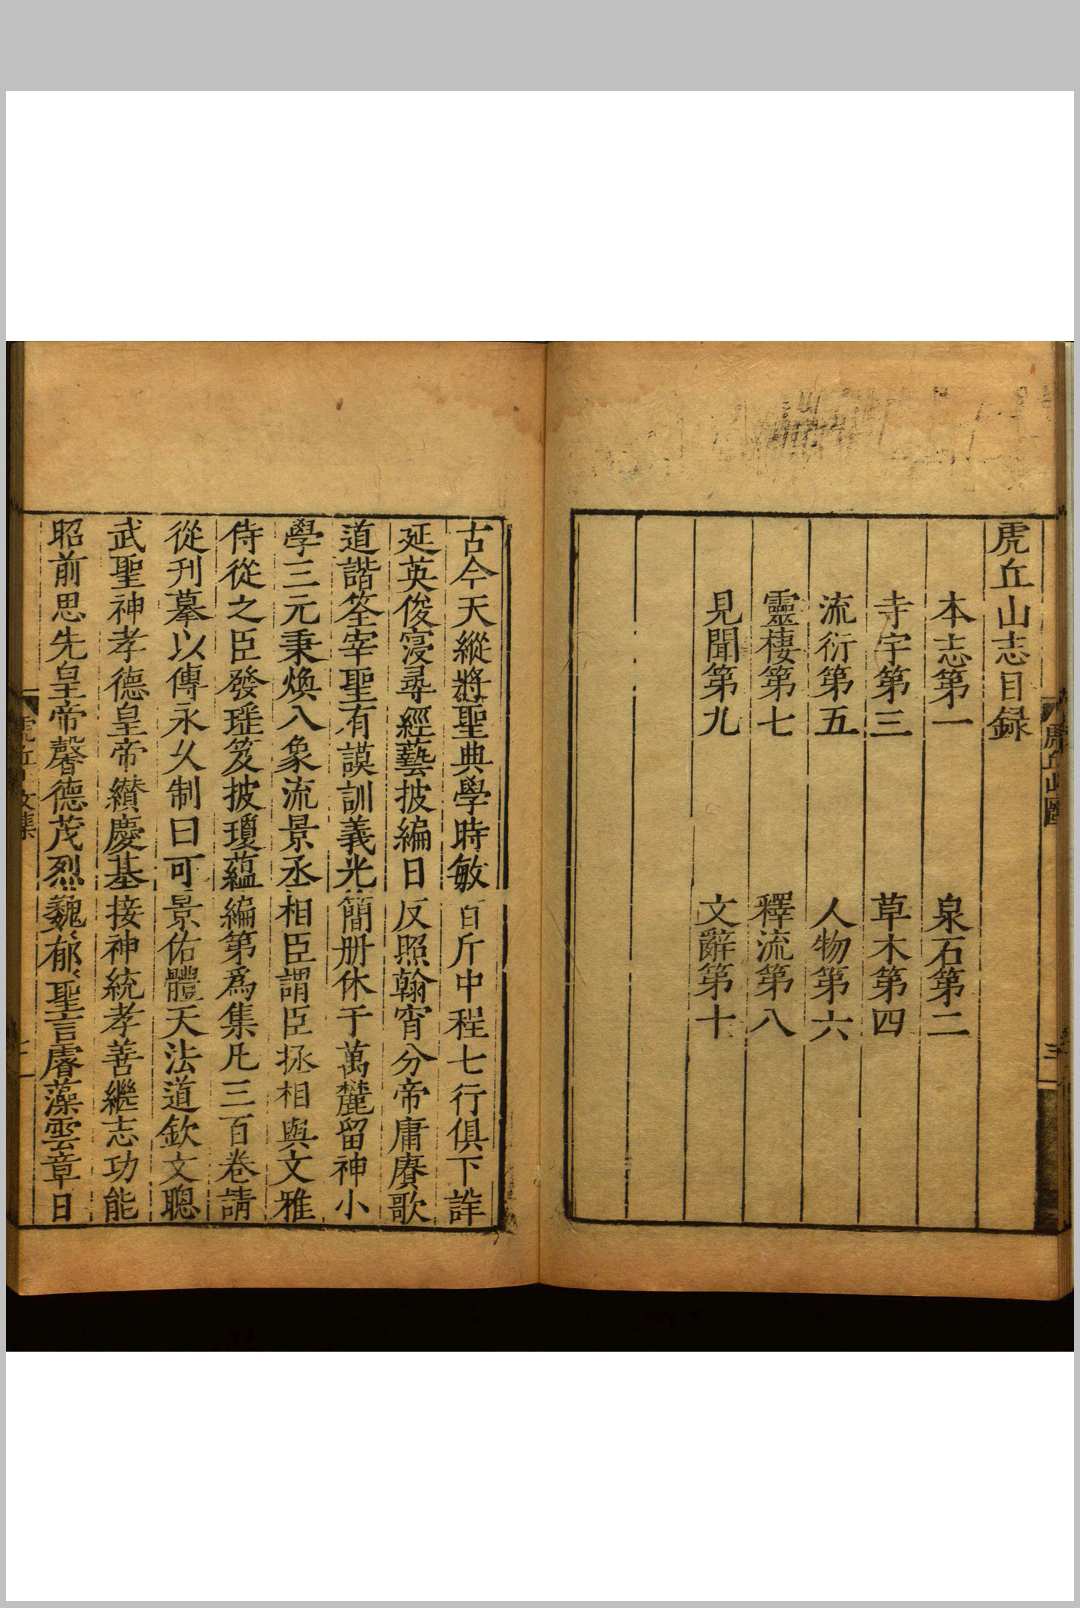 虎丘山志目録
本志第一
泉石第二
寺宇第三
草木第四
流衍第五
人物第六
靈棲第七
釋流第八
見聞第九
文辭第十
古今天縱將聖典學時敏百斤中程七行俱下詳
延英俊寖尋經藝披編日反照翰宵分帝庸賡歌
道諧筌宰聖有謨訓義光簡册休于萬麓留神小
學三元秉煥八象流景丞相臣謂臣拯相與文雅
侍從之臣發瑶笈披瓊蘊編第爲集凡三百卷請
從刋摹以傳永乆制曰可景佑體天法道欽文聰
武聖神孝德皇帝纉慶基接神統孝善繼志功能
昭前思先皇帝馨德茂烈巍郁聖言睿藻雲章日